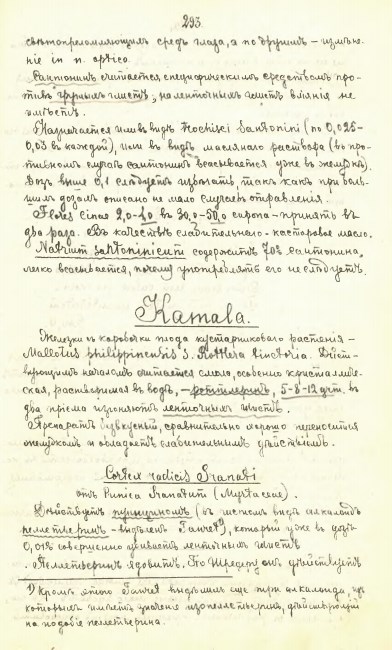 293.
свѣтопреломляющихъ средъ глаза, а по другимъ – измѣне-
нiе in n. optico.
Сантонинъ считается специфическимъ средствомъ про-
тивъ круглыхъ глистъ; на ленточныхъ глистъ влiянiя не
имѣетъ.
Назначается или въ видѣ Trochisci Santonini (по 0,025-
0,05 въ каждой), или въ видѣ маслянаго раствора (въ про-
тивномъ случаѣ сантонинъ всасывается уже въ желудкѣ).
Дозъ выше 0,1 слѣдуетъ избѣгать, такъ какъ при боль-
шихъ дозахъ описано не мало случаевъ отравленiя.
Flores cinae 2,0-4,0 въ 30,0-50,0 сиропа – принять въ
два раза. Въ качествѣ слабительнаго – касторовое масло.
Natrum santonicum содержитъ 70% сантонина,
легко всасывается, почему употреблять его не слѣдуетъ.
Kamala.
Желѕзки съ коробочки плода кустарниковаго растенiя –
Mallotus philippinensis s. Rottlera tinctoria. Дѣйст-
вующимъ началомъ считается смола, особенно кристалличе-
ская, растворимая въ водѣ, – роттлеринъ, 5-8-12 grm. въ
два прiема изгоняютъ ленточныхъ глистъ.
Препаратъ безвкусный, сравнительно хорошо переносится
желудкомъ и обладаетъ слабительнымъ дѣйствiемъ.
Cortex radicis Granati
отъ Punica Granatum (Myrtaceae).
Дѣйствуетъ пуницинномъ (въ чистомъ видѣ алкалоидъ
пеллетьеринъ – выдѣленъ Танчетъ¹⁾), который уже въ дозѣ
0,01% совершенно убиваетъ ленточныхъ глистъ.
Пеллетьеринъ ядовитъ. По Шредеру онъ дѣйствуетъ
¹⁾ Кромѣ этого Танчетъ выдѣлилъ еще три алкалоида, изъ
которыхъ имѣетъ значенiе изопеллетьеринъ, дѣйствующiй
на подобiе пеллетьерина.